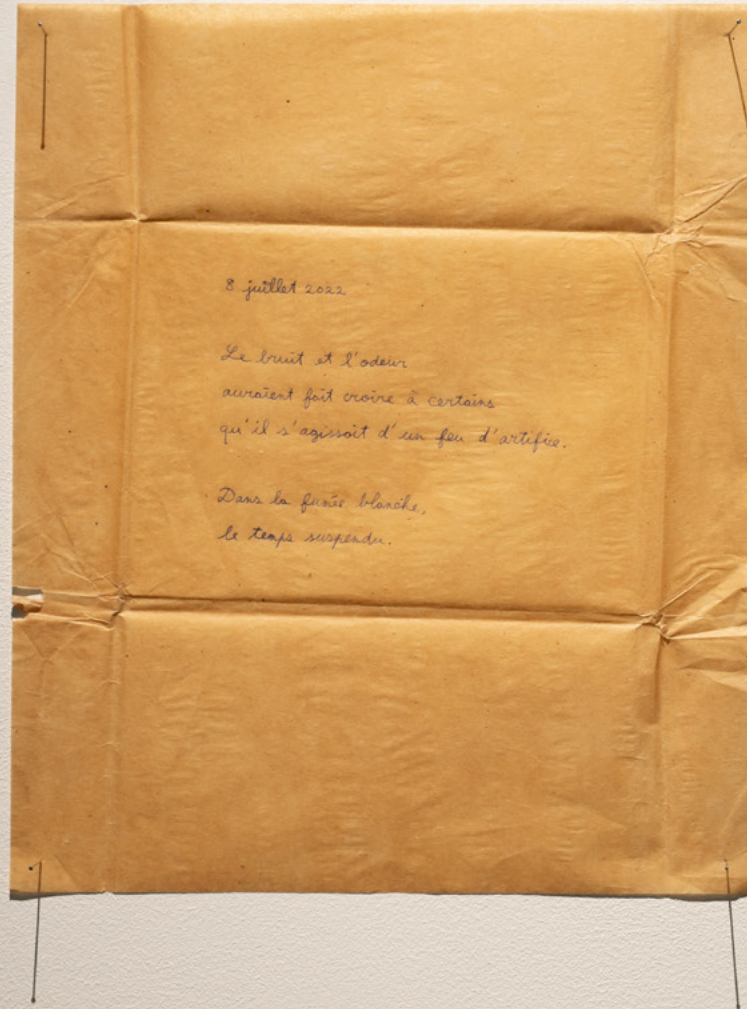 8 juillet 2022
Le bruit et l'odeur
auraient fait croire à certains
qu'il s'agissait d'un feu d'artifice.
Dans la fumée blanche,
le temps suspendu.